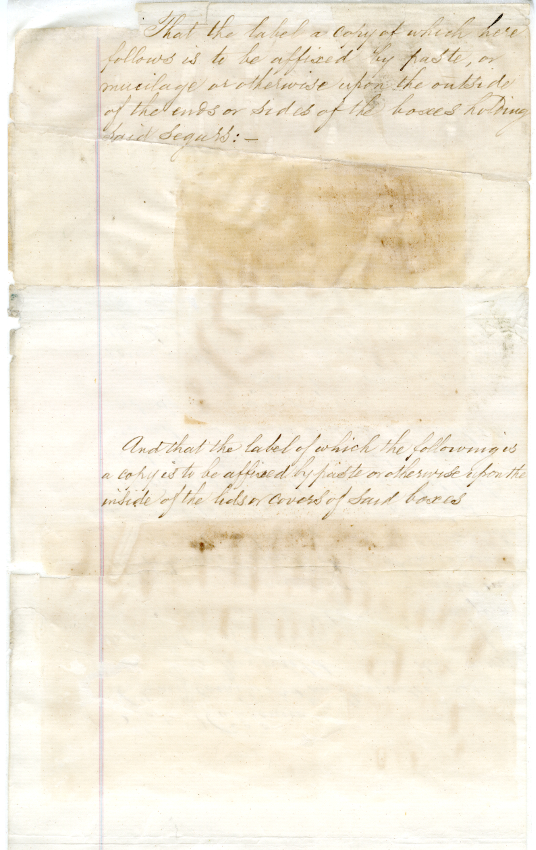 That the label a copy of which here
follows is to be affixed by paste, or
mucilage or otherwise upon the outside
of the ends or sides of the boxes holding
said Segars: —
And that the label of which the following is
a copy is to be affixed by paste or otherwise upon the
inside of the lids or covers of said boxes